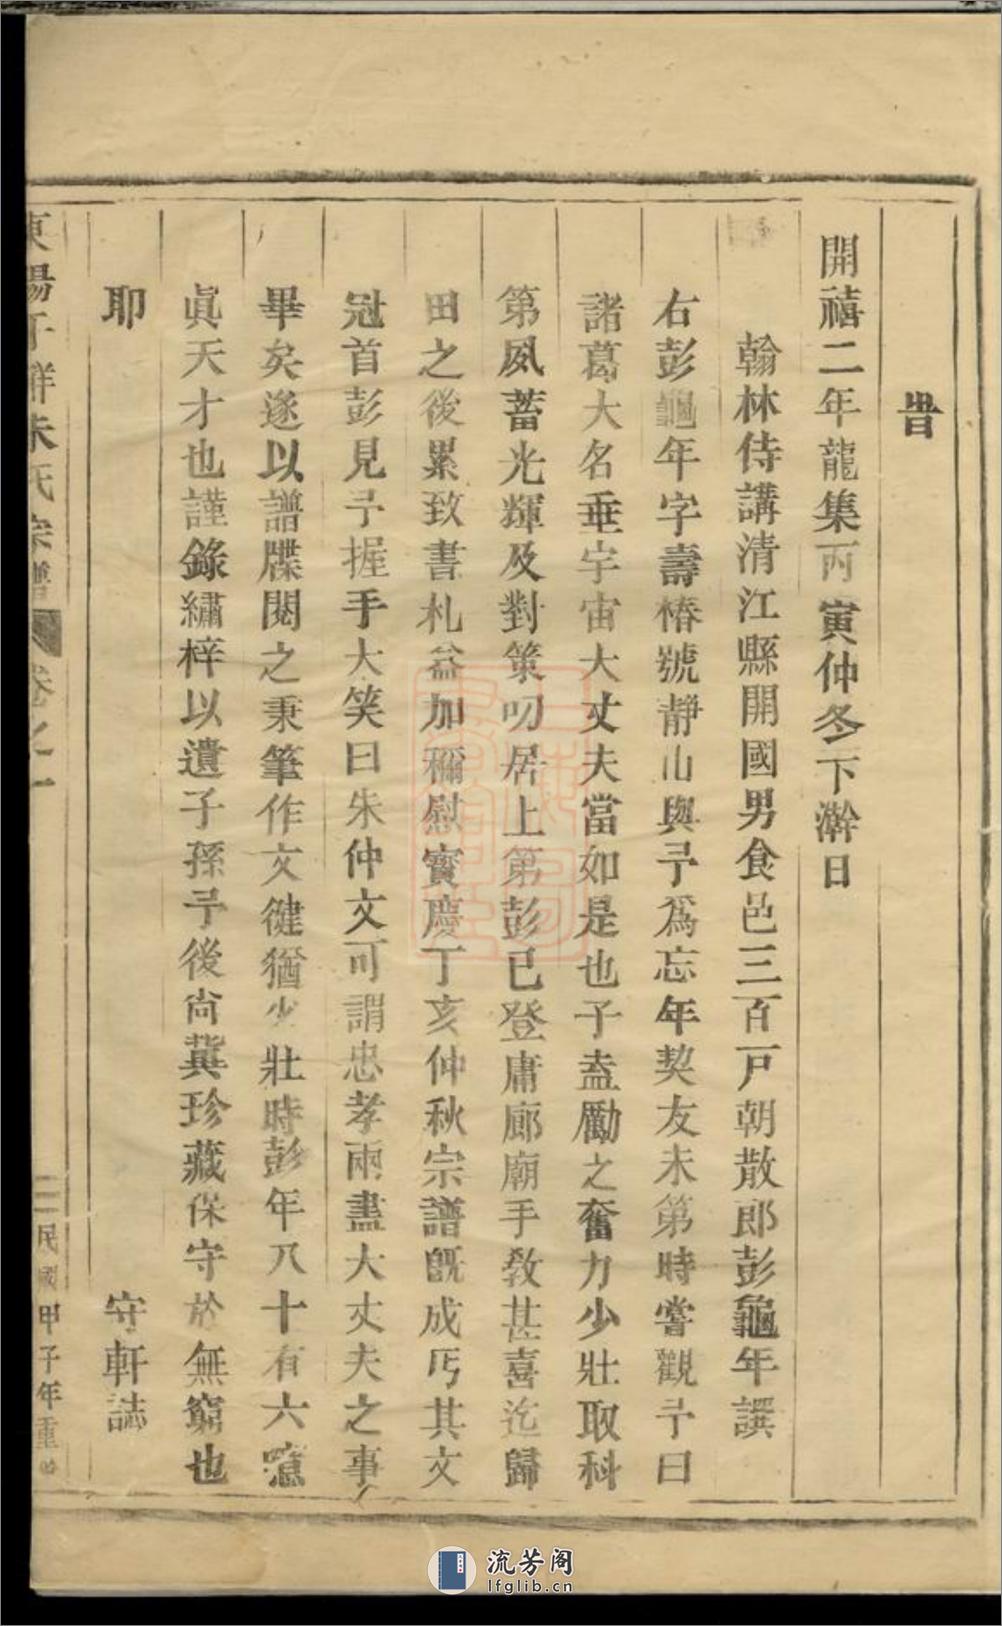 昔
開禧二年龍集丙寅仲冬下澣日
翰林侍講清江縣開國男食邑三百戸朝散郎彭龜年譔
右彭龜年字壽椿號靜山與予爲忘年契友未第時嘗觀予曰
諸葛大名垂宇宙大丈夫當如是也子盍勵之奮力少壯取科
第夙蓄光輝及對策叨居上第彭已登庸廊廟手敎甚喜迄歸
田之後累致書札益加穪慰寳慶丁亥仲秋宗譜旣成丐其文
冠首彭見予握手大笑曰朱仲文可謂忠孝兩盡大丈夫之事
畢矣遂以譜牒閱之秉筆作文健猶少壯時彭年八十有六
眞天才也謹錄繡梓以遺子孫予後尙冀珍藏保守於無窮也
耶
守軒誌
東陽千祥朱氏宗譜 卷之一 二 民國甲子年重
流芳阁
lfglib.cn